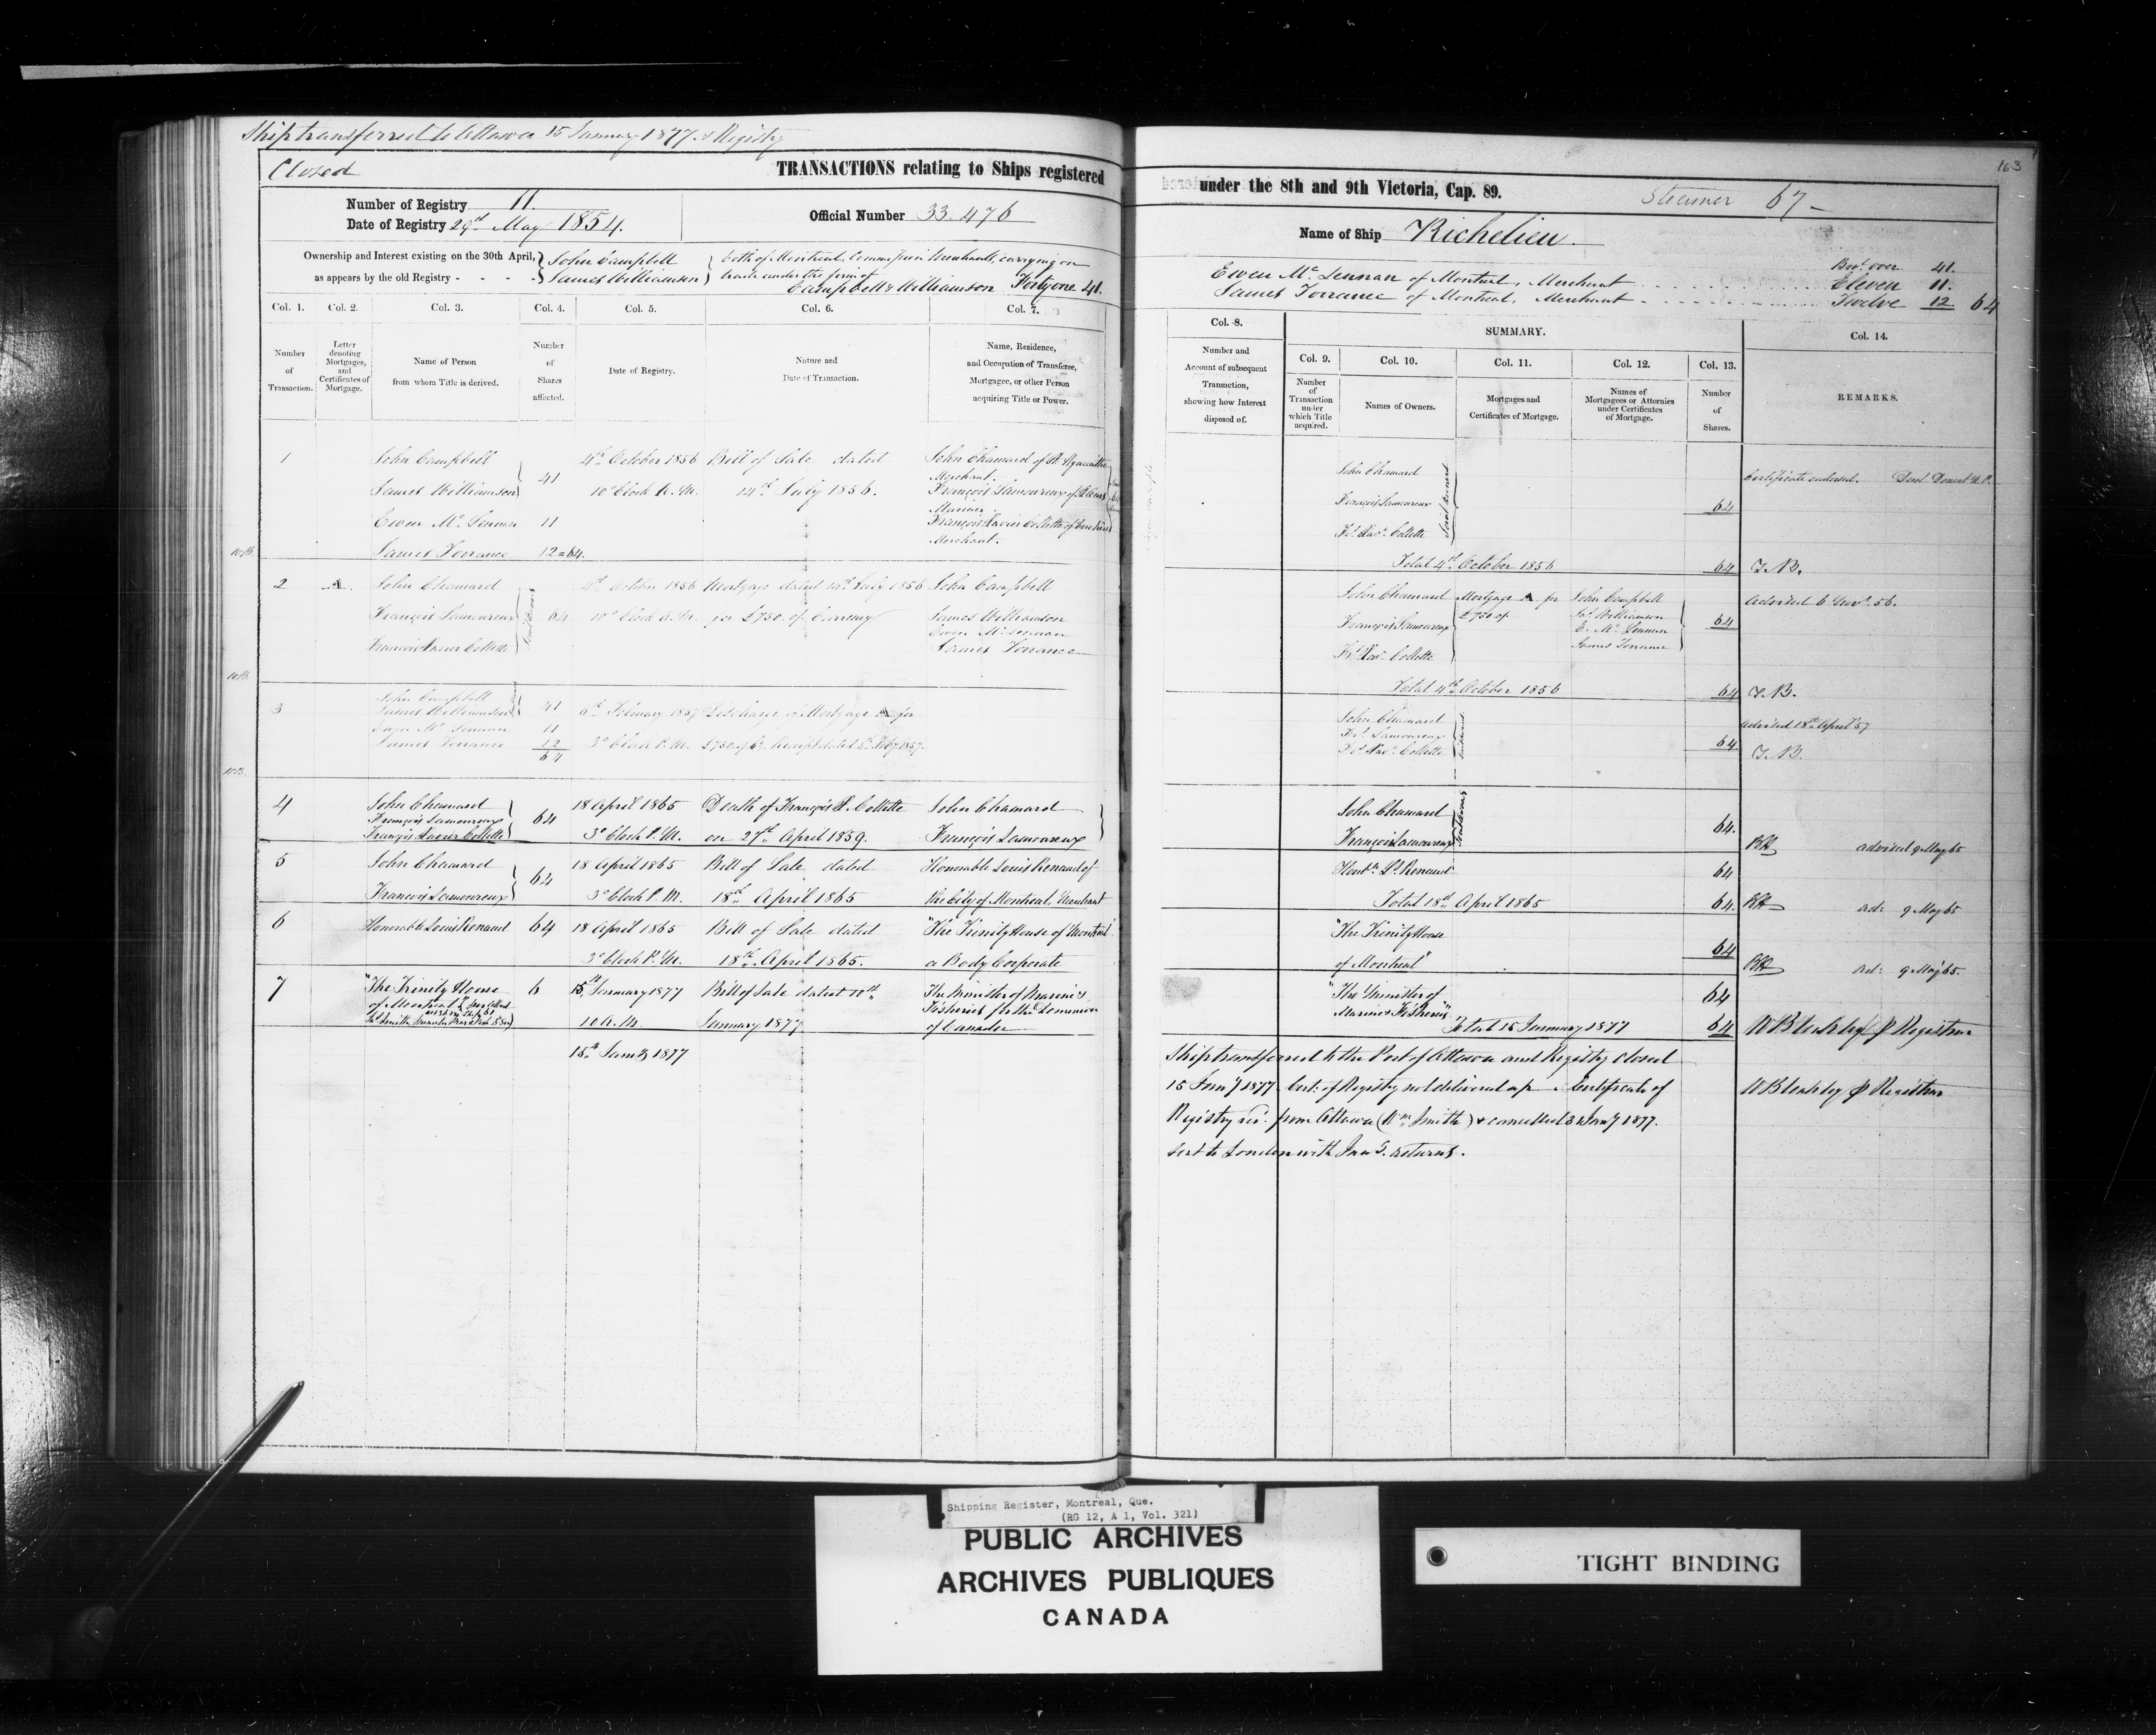 Ship transferred to Ottawa 15 January 1877 & Registry
Closed
TRANSACTIONS relating to Ships registered
Number of Registry 11.
Date of Registry 29th May 1854.
Official Number 33.476
Ownership and Interest existing on the 30th April, as appears by the old Registry - - - -
John Campbell
James Williamson
both of Montreal Commission Merchants, carrying on
trade under the firm of
Campbell & Williamson Forty one 41.
Col. 1. Col. 2. Col. 3. Col. 4. Col. 5. Col. 6. Col. 7.
Number of Transaction.
Letter denoting Mortgages, and Certificates of Mortgage.
Name of Person from whom Title is derived.
Number of Shares affected.
Date of Registry.
Nature and Date of Transaction.
Name, Residence, and Occupation of Transferee, Mortgagee, or other Person acquiring Title or Power.
1 John Campbell 4th October 1856 Bill of Sale dated John Chamard of St. Hyacinthe
Merchant.
James Williamson 41 10 o'Clock A.M. 14th July 1856. François Lamoureux of
Mariner.
Ewen Mc Lennan 11 François Xavier Collette of
Merchant.
James Torrance 12=64.
2 A. John Chamard 4th October 1856 Mortgage dated 14th July 1856 John Campbell
François Lamoureux 64 10 o'Clock A.M. for £750. of Currency James Williamson
Ewen Mc Lennan
François Xavier Collette James Torrance
3 John Campbell
James Williamson 41 6th February 1857 Discharge of Mortgage A for
Ewen Mc Lennan 11
James Torrance 12 3 o'Clock P.M. £750 Receipt dated Feby 1857.
64
4 John Chamard 18 April 1865 Death of François X. Collette John Chamard
François Lamoureux 64
François Xavier Collette 3 o'Clock P.M. on 27th April 1859. François Lamoureux
5 John Chamard 18 April 1865 Bill of Sale dated Honorable Louis Renaud of
64
François Lamoureux 3 o'Clock P.M. 18th April 1865 the City of Montreal, Merchant
6 Honorable Louis Renaud 64 18 April 1865 Bill of Sale dated "The Trinity House of Montreal"
3 o'Clock P.M. 18th April 1865. a Body Corporate
7 "The Trinity House 6 15th January 1877 Bill of Sale dated 10th The Minister of Marine &
of Montreal Fisheries for the Dominion
10 A.M. January 1877 of Canada
15th Jany 1877
163
under the 8th and 9th Victoria, Cap. 89.
Steamer 67-
Name of Ship Richelieu.
Brot over 41.
Ewen Mc Lennan of Montreal, Merchant Eleven 11.
James Torrance of Montreal, Merchant Twelve 12 64
Col. 8. SUMMARY. Col. 14.
Col. 9. Col. 10. Col. 11. Col. 12. Col. 13.
Number and Account of subsequent Transaction, showing how Interest disposed of.
Number of Transaction under which Title acquired.
Names of Owners.
Mortgages and Certificates of Mortgage.
Names of Mortgagees or Attornies under Certificates of Mortgage.
Number of Shares.
REMARKS.
John Chamard
Certificate endorsed.
François Lamoureux Joint Owners 64
Fs. Xavr. Collette
Total 4th October 1856 64 T.B.
John Chamard Mortgage A for John Campbell Advised 6 Novr. 56.
François Lamoureux £750 Js. Williamson 64
E. Mc Lennan
Fs. Xavr. Collette James Torrance
Total 4th October 1856 64 T.B.
John Chamard Advised 18th April 57
Fs. Lamoureux
Fs. Xavr. Collette 64 T.B.
John Chamard
64.
François Lamoureux advised 9 May 65
Honble Ls. Renaud 64
Total 18th April 1865 64. ad: 9 May 65
"The Trinity House
64
of Montreal" ad: 9 May 65
"The Minister of 64
Marine & Fisheries"
Total 15 January 1877 64 Registrar
Ship transferred to the Port of Ottawa and Registry closed
15 Jany 1877 Cert: of Registry not delivered up. Certificate of Registrar
Registry from Ottawa (Wm Smith) & cancelled 31 Jany 1877.
Sent to London with returns.
Shipping Register, Montreal, Que.
(RG 12, A 1, Vol. 321)
PUBLIC ARCHIVES
ARCHIVES PUBLIQUES
CANADA
TIGHT BINDING